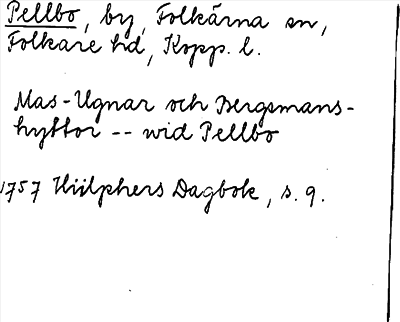 Pellbo, by, Folkärna sn,
Folkare hd, Kopp. l.
Mas-Ugnar och Bergsmans-
hyttor -- wid Pellbo
1757 Hülphers Dagbok, s. 9.